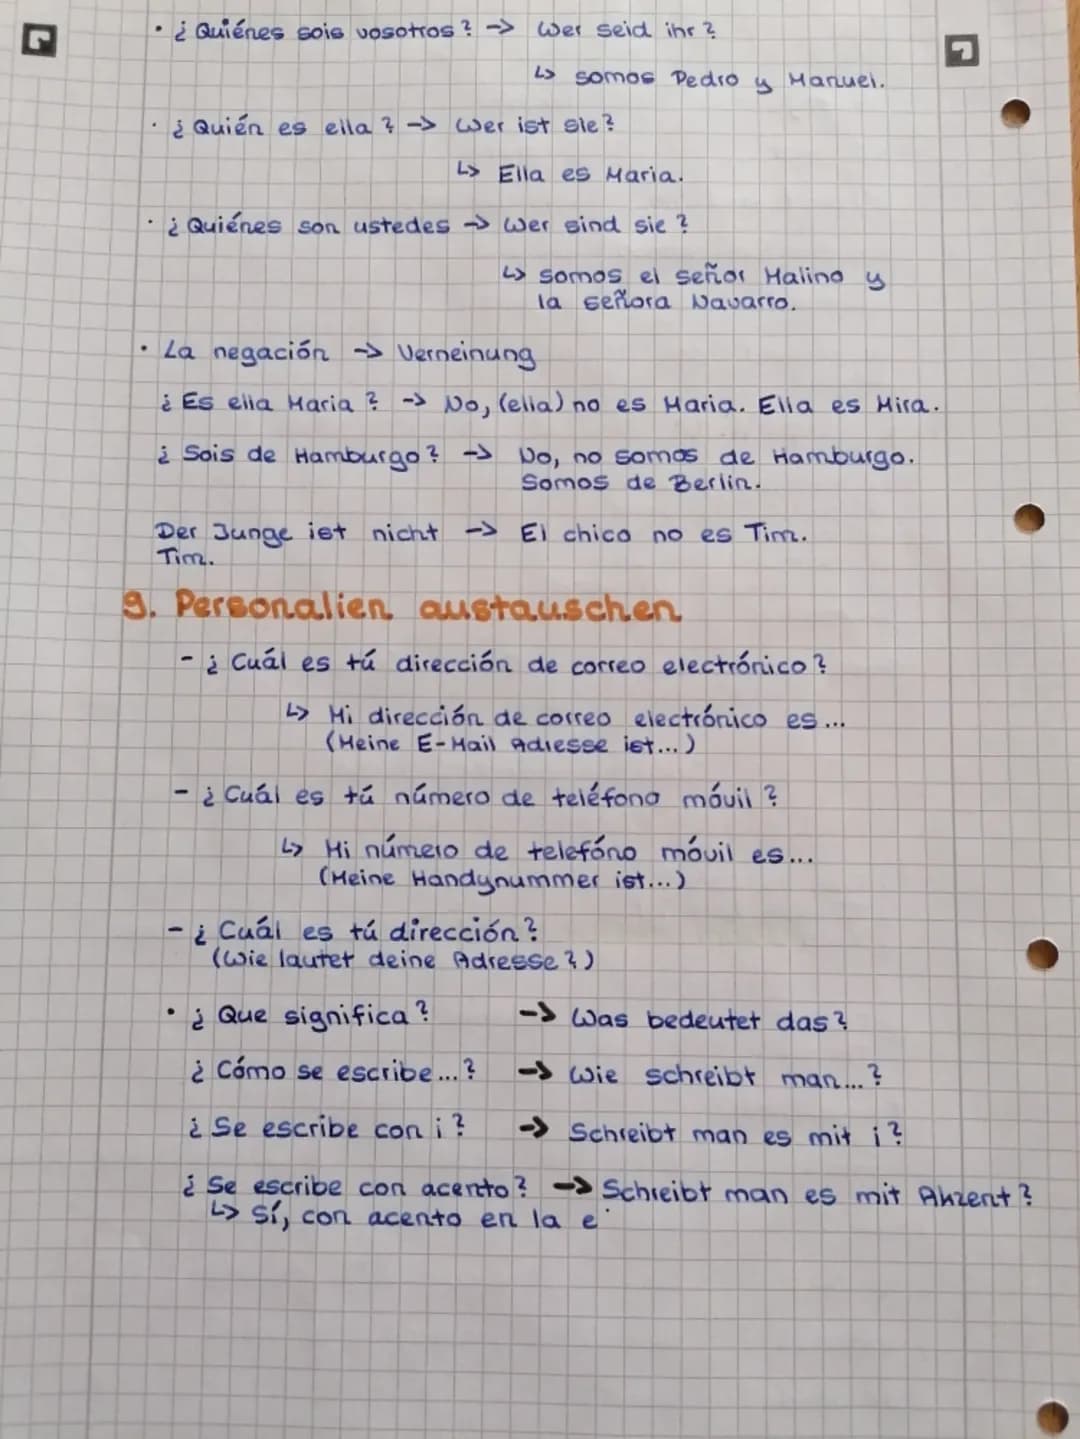 • ¿Quiénes sois vosotros? -> Wer seid ihr?
↳ somos Pedro y Manuel.
• ¿Quién es ella? -> Wer ist sie?
↳ Ella es Maria.
• ¿Quiénes son ustedes -> Wer sind sie?
↳ somos el señor Malino y
la señora Navarro.
• La negación -> Verneinung
¿Es ella Maria? -> No, (ella) no es Maria. Ella es Mira.
¿Sois de Hamburgo? -> No, no somos de Hamburgo.
Somos de Berlin.
Der Junge ist nicht -> El chico no es Tim.
Tim.
9. Personalien austauschen
- ¿Cuál es tú dirección de correo electrónico?
↳ Mi dirección de correo electrónico es...
(Meine E-Mail Adresse ist...)
- ¿Cuál es tú número de teléfono móvil?
↳ Mi número de telefóno móvil es...
(Meine Handynummer ist...)
- ¿Cuál es tú dirección?
(Wie lautet deine Adresse?)
• ¿Que significa? -> Was bedeutet das?
¿Cómo se escribe...? -> Wie schreibt man...?
¿Se escribe con i? -> Schreibt man es mit i?
¿Se escribe con acento? -> Schreibt man es mit Akzent?
↳ Sí, con acento en la e